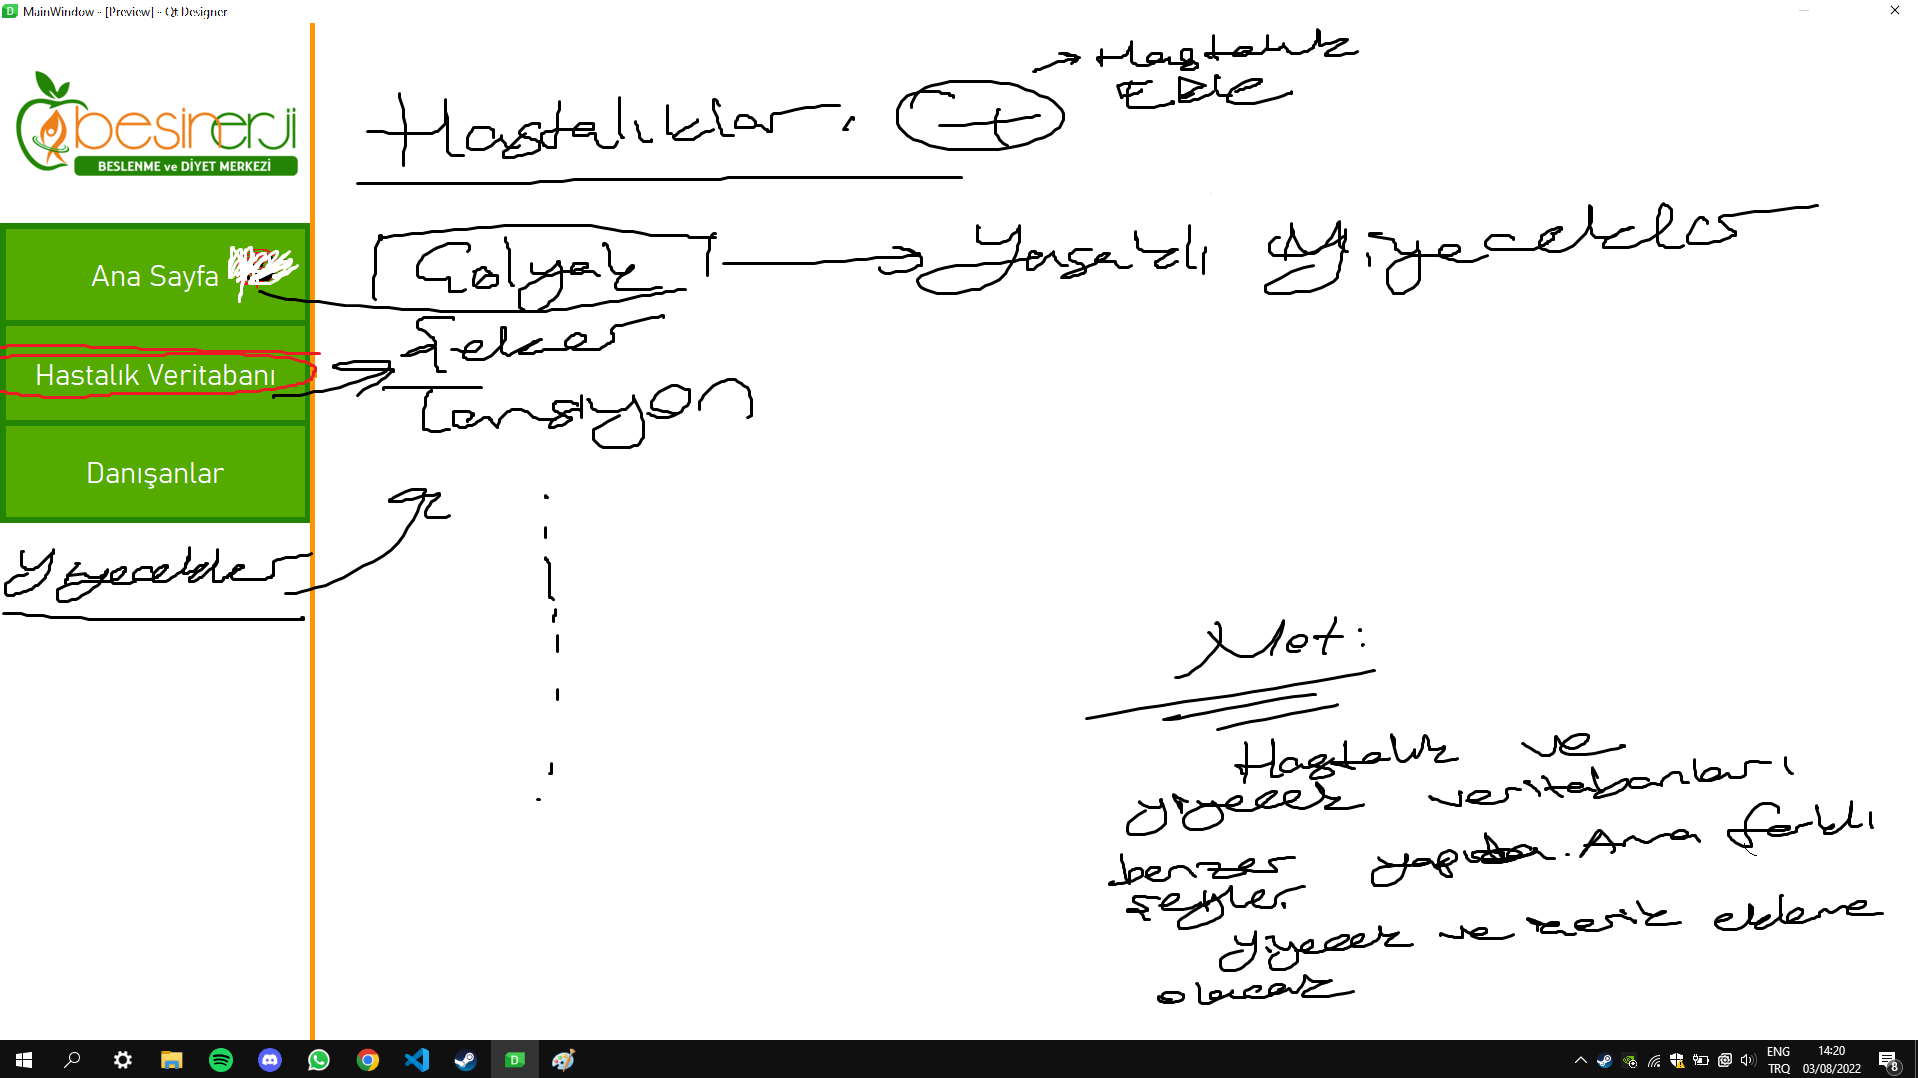 MainWindow - [Preview] - Qt Designer
besinerji
BESLENME ve DİYET MERKEZİ
Ana Sayfa
Hastalık Veritabanı
Danışanlar
Yiyecekler
Hastalıklar.
+
Hastalık
EKLE
Çölyak
Yasaklı Yiyecekler
Şeker
Tansiyon
Not:
Hastalık ve
yiyecek veritabanları
benzer yapıda. Ama farklı
şeyler.
Yiyecek ve içerik ekleme
olacak
ENG
TRQ
14:20
03/08/2022
8